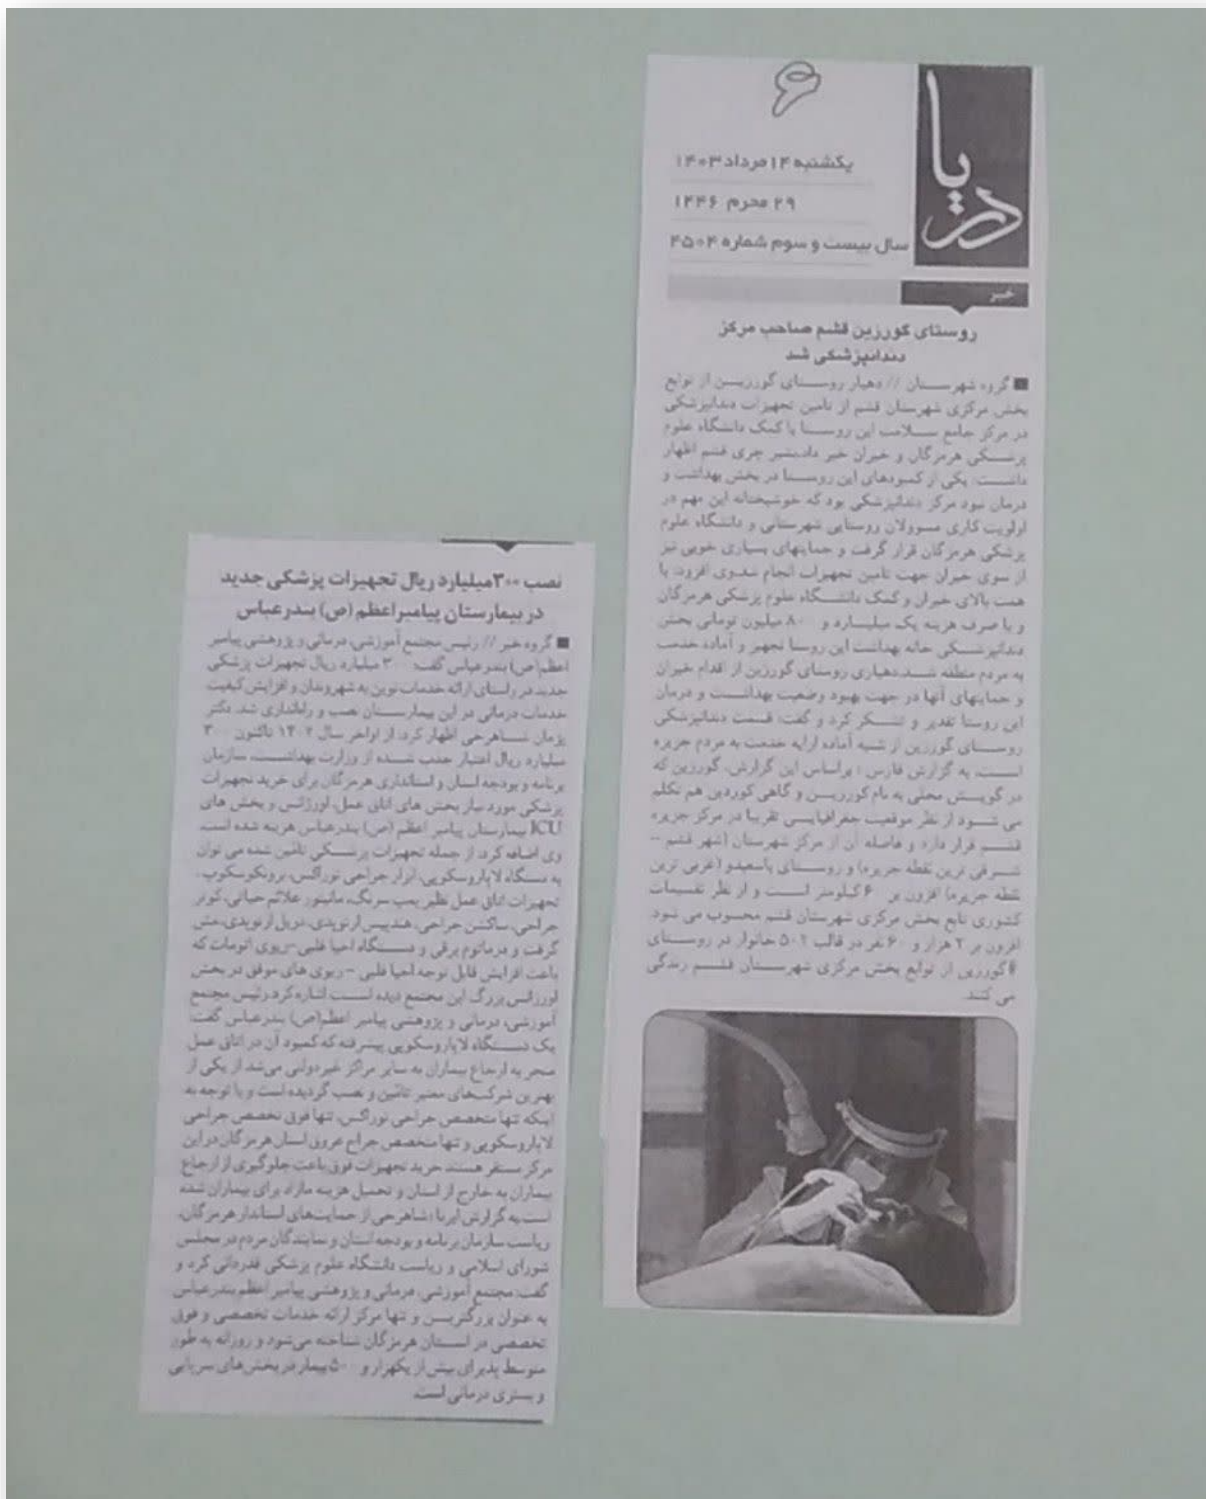 ۶
دریا
یکشنبه ۱۴ مرداد ۱۴۰۳
۲۹ محرم ۱۴۴۶
سال بیست و سوم شماره ۴۵۰۴
خبر
روستای گورزین قشم صاحب مرکز
دندانپزشکی شد
■ گروه شهرستان // دهیار روستای گورزین از توابع
بخش مرکزی شهرستان قشم از تامین تجهیزات دندانپزشکی
در مرکز جامع سلامت این روستا با کمک دانشگاه علوم
پزشکی هرمزگان و خیران خبر داد.بشیر چری قشم اظهار
داشت: یکی از کمبودهای این روستا در بخش بهداشت و
درمان نبود مرکز دندانپزشکی بود که خوشبختانه این مهم در
اولویت کاری مسوولان روستایی شهرستانی و دانشگاه علوم
پزشکی هرمزگان قرار گرفت و حمایتهای بسیاری خوبی نیز
از سوی خیران جهت تامین تجهیزات انجام شد.وی افزود: با
همت بالای خیران و کمک دانشگاه علوم پزشکی هرمزگان
و با صرف هزینه یک میلیارد و ۸۰۰ میلیون تومانی بخش
دندانپزشکی خانه بهداشت این روستا تجهیز و آماده خدمت
به مردم منطقه شد.دهیاری روستای گورزین از اقدام خیران
و حمایتهای آنها در جهت بهبود وضعیت بهداشت و درمان
این روستا تقدیر و تشکر کرد و گفت: قسمت دندانپزشکی
روستای گورزین از شنبه آماده ارایه خدمت به مردم جزیره
است. به گزارش فارس ؛ براساس این گزارش، گورزین که
در گویش محلی به نام کورزین و گاهی کوردین هم تکلم
می شود از نظر موقعیت جغرافیایی تقریبا در مرکز جزیره
قشم قرار دارد و فاصله آن از مرکز شهرستان (شهر قشم -
شرقی ترین نقطه جزیره) و روستای باسعیدو (غربی ترین
نقطه جزیره) افزون بر ۶۰ کیلومتر است و از نظر تقسیمات
کشوری تابع بخش مرکزی شهرستان قشم محسوب می شود.
افزون بر ۲ هزار و ۶۰ نفر در قالب ۵۰۲ خانوار در روستای
گورزین از توابع بخش مرکزی شهرستان قشم زندگی
می کنند.
نصب ۳۰۰میلیارد ریال تجهیزات پزشکی جدید
در بیمارستان پیامبراعظم (ص) بندرعباس
■ گروه خبر // رئیس مجتمع آموزشی، درمانی و پژوهشی پیامبر
اعظم(ص) بندرعباس گفت: ۳۰۰ میلیارد ریال تجهیزات پزشکی
جدید در راستای ارائه خدمات نوین به شهروندان و افزایش کیفیت
خدمات درمانی در این بیمارستان نصب و راه‌اندازی شد. دکتر
پژمان شاهرخی اظهار کرد: از اواخر سال ۱۴۰۲ تاکنون ۳۰۰
میلیارد ریال اعتبار جذب شده از وزارت بهداشت، سازمان
برنامه و بودجه استان و استانداری هرمزگان برای خرید تجهیزات
پزشکی مورد نیاز بخش های اتاق عمل، اورژانس و بخش های
ICU بیمارستان پیامبر اعظم (ص) بندرعباس هزینه شده است.
وی اضافه کرد: از جمله تجهیزات پزشکی تأمین شده می توان
به دستگاه لاپاروسکوپی، ابزار جراحی توراکس، برونکوسکوپ،
تجهیزات اتاق عمل نظیر پمپ سرنگ، مانیتور علائم حیاتی، کوتر
جراحی، ساکشن جراحی، هندپیس ارتوپدی، دریل ارتوپدی، مش
گرفت و درماتوم برقی و دستگاه احیا قلبی-ریوی اتومات که
باعث افزایش قابل توجه احیا قلبی - ریوی های موفق در بخش
اورژانس بزرگ این مجتمع دیده است اشاره کرد.رئیس مجتمع
آموزشی، درمانی و پژوهشی پیامبر اعظم(ص) بندرعباس گفت:
یک دستگاه لاپاروسکوپی پیشرفته که کمبود آن در اتاق عمل
منجر به ارجاع بیماران به سایر مراکز غیردولتی می‌شد از یکی از
بهترین شرکت‌های معتبر تأمین و نصب گردیده است و با توجه به
اینکه تنها متخصص جراحی توراکس، تنها فوق تخصص جراحی
لاپاروسکوپی و تنها متخصص جراح عروق استان هرمزگان در این
مرکز مستقر هستند خرید تجهیزات فوق باعث جلوگیری از ارجاع
بیماران به خارج از استان و تحمیل هزینه مازاد برای بیماران شده
است.به گزارش ایرنا ؛شاهرخی از حمایت‌های استاندار هرمزگان،
ریاست سازمان برنامه و بودجه استان و نمایندگان مردم در مجلس
شورای اسلامی و ریاست دانشگاه علوم پزشکی قدردانی کرد و
گفت: مجتمع آموزشی، درمانی و پژوهشی پیامبر اعظم بندرعباس
به عنوان بزرگترین و تنها مرکز ارائه خدمات تخصصی و فوق
تخصصی در استان هرمزگان شناخته می‌شود و روزانه به طور
متوسط پذیرای بیش از یکهزار و ۵۰۰ بیمار در بخش‌های سرپایی
و بستری درمانی است.